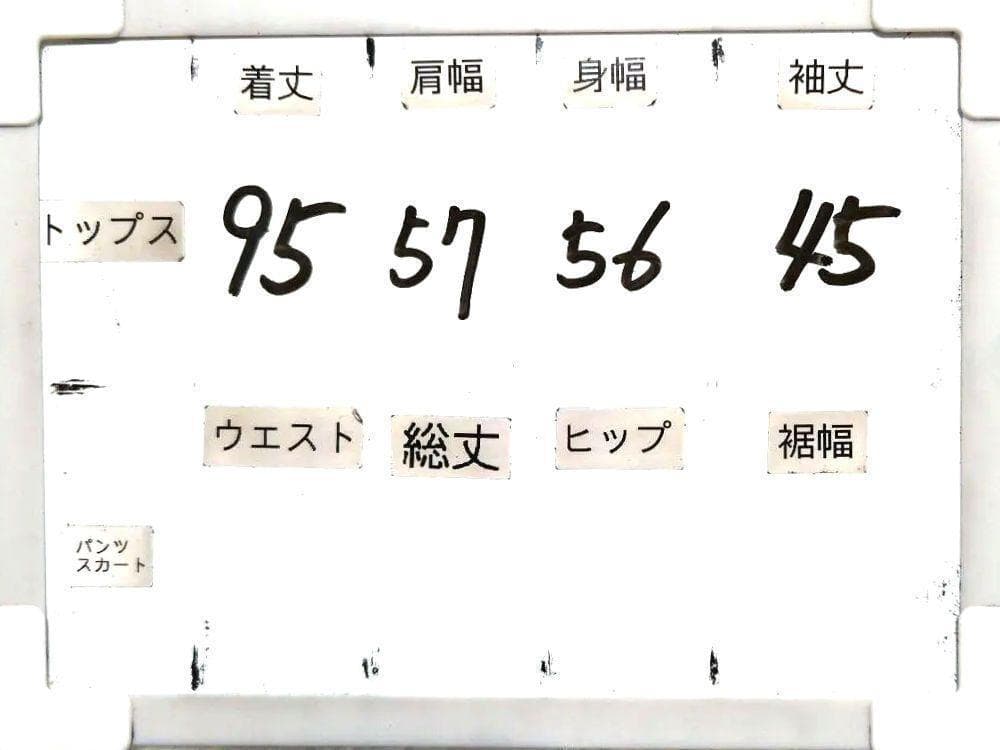 着丈 肩幅 身幅 袖丈
トップス 95 57 56 45
ウエスト 総丈 ヒップ 裾幅
パンツ
スカート